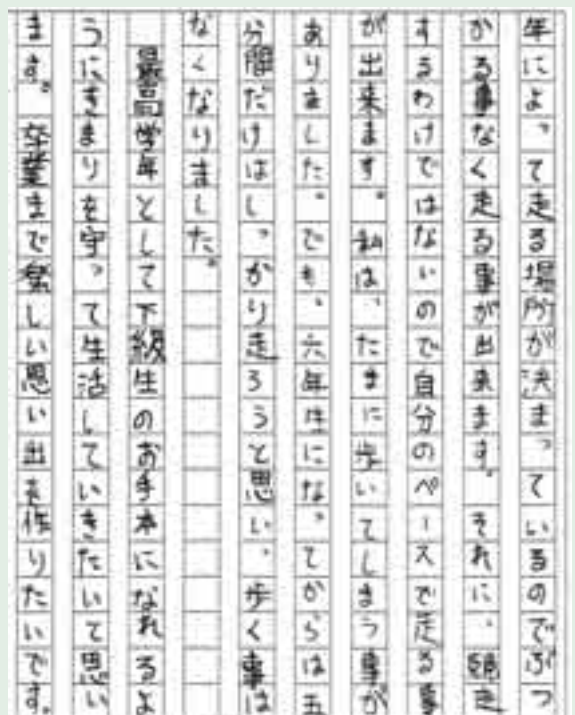 年によって走る場所が決まっているのでぶつ
かる事なく走る事が出来ます。それに、競走
するわけではないので自分のペースで走る事
が出来ます。私は、たまに歩いてしまう事が
ありました。でも、六年生になってからは五
分間だけはしっかり走ろうと思い、歩く事は
なくなりました。
最高学年として下級生のお手本になれるよ
うにきまりを守って生活していきたいて思い
ます。卒業まで楽しい思い出を作りたいです。